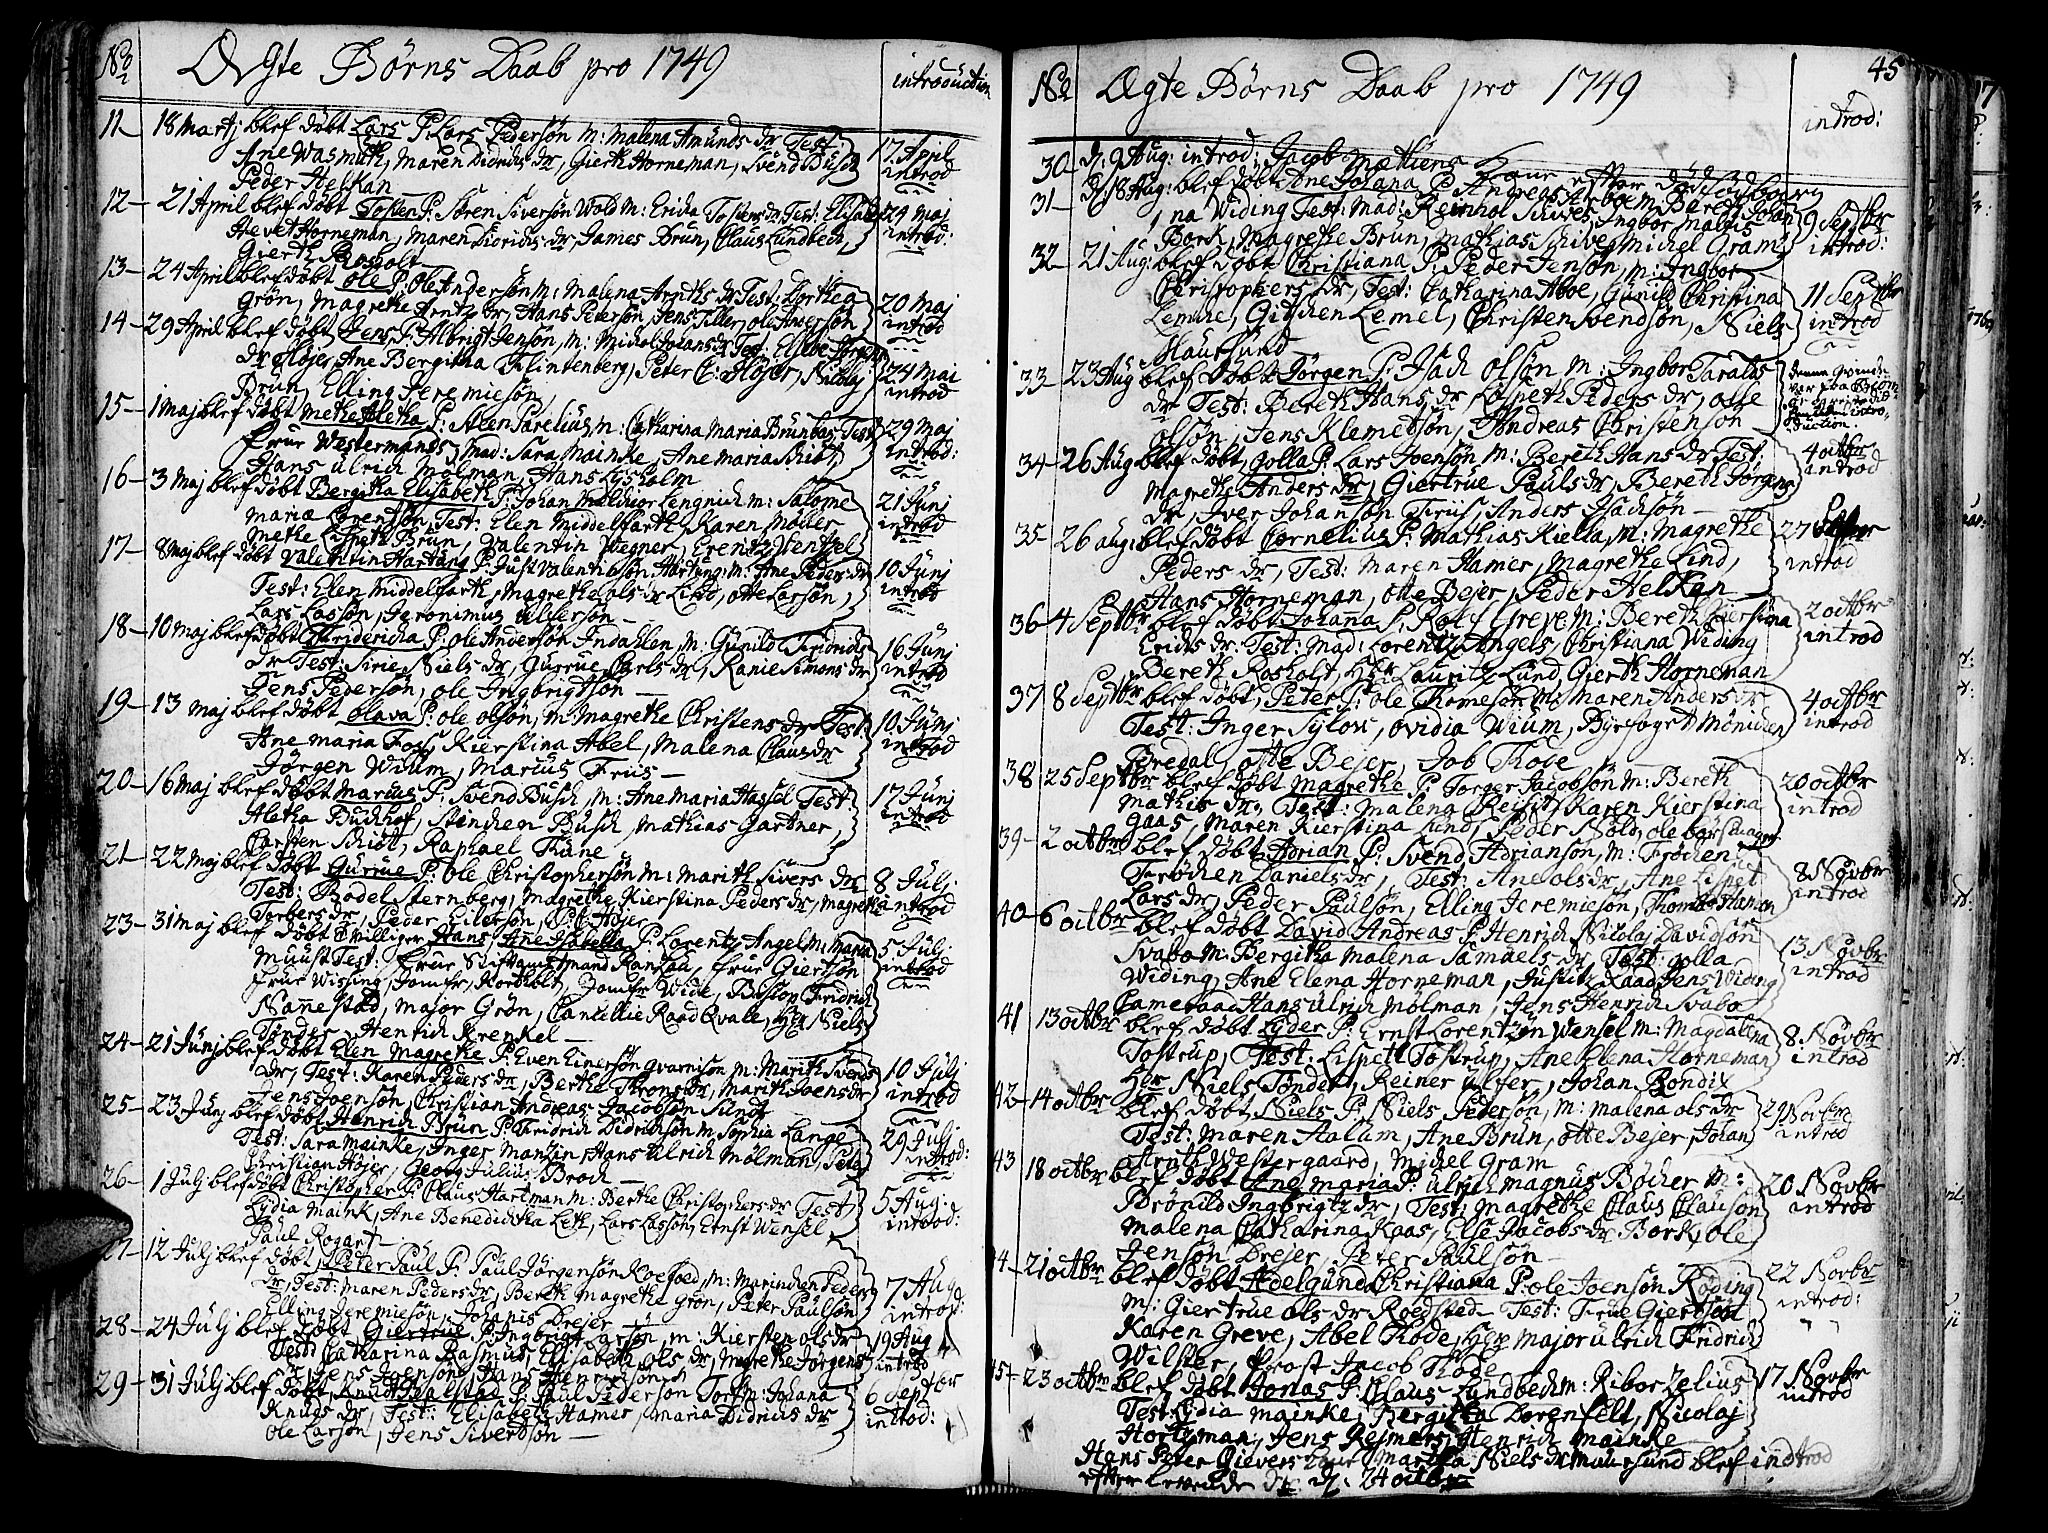 No Ægte Børns Daab pro 1749 introduction
11 - 18 Martj blef døbt Lars P: Lars Pedersøn M: Malena Amunds dr Test:
Ane Wasmuth, Maren Didrichs dr, Gierth Horneman, Svend Busch
Peder Helkan
17 April introd
12 - 21 April blef døbt Tosten P: Søren Siversøn Wold M: Ericha Tostens dr Test: Elisabet
Hevet Horneman, Maren Didrichs dr, James Brun, Claus Lundbech,
Gierth Rosholt
24 Maj introd:
13 - 24 April blef døbt Ole P: Ole Andersøn M: Malena Arnths dr Test: Dorthea
Grøn, Magrethe Arntz dr, Hans Petersøn, Jens Tiller, Ole Andersøn
20 Maj introd
14 - 29 April blef døbt Jens P: Albrigt Jensøn, M: Michol Johans dr Test: Elsebe Jørgens
dr Højer, Ane Bergitha Flintenberg, Peter C: Højer, Nicolaj
Brun, Elling Jeremiesøn
24 Maj introd
15 - 1 Maj blef døbt Methe Aletha P: Aten Parelius, M: Catharina Maria Brunbas Test
Frue Westermands, Mad: Sara Mainke, Ane Maria Schiøt,
Hans Ulrich Mølman, Hans Lysholm
29 Maj introd:
16 - 3 Maj blef døbt Bergitha Elisabeth P: Johan Malchior Lengnich M: Salome
Maria Lorensøn, Test: Elen Middelfarth, Karen Møller
Methe Lispeth Brun, Valentin Wegner, Erentz Wentzel
21 Junj introd
17 - 8 Maj blef døbt Valentin Hartung P: Just Valentinsøn Hartung, M: Ane Peders dr
Test: Elen Middelfarth, Magrethe Ols dr Lind, Otte Larsøn,
Lars Lassøn, Jeronimus Ulfersøn
10 Junj introd
18 - 10 Maj blef døbt Fridericha P: Ole Andersøn Indahlen, M: Gunild Fridrichs
dr Test: Sirie Niels dr, Gurrue Carls dr, Ranie Simons dr
Jens Pedersøn, Ole Ingbrigtsøn
16 Junj introd
19 - 13 Maj blef døbt Olava P: Ole Olsøn, M: Magrethe Christens dr Test:
Ane Maria Foss, Kierstina Abel, Malena Claus dr
Jørgen Wium, Marius Friis
10 Junj introd
20 - 16 Maj blef døbt Marius P: Svend Busch, M: Ane Maria Hassel Test
Aletha Buchhof, Stenchen Busch, Mathias Gartner,
Carsten Schiøt, Raphael Thüne
17 Junj introd
21 - 22 Maj blef døbt Gurrue P: Ole Christophersøn M: Marith Sivers dr
Test: Bodel Sternberg, Magrethe Kierstina Peders dr, Magrethe
Torbers dr, Peder Eilersøn, Højer
8 Julj introd
23 - 31 Maj blef døbt Hans, Ane Isabella P: Lorentz Angel M: Maria
Muust Test: Frue Stiftamptmand Rantzau, Frue Giertsøn
Frue Wissing, Jomfr Wide, Bistop Fridrich
Nannestad, Major Grøn, Cancellie Raad Qvale, Hr Niels
Tønder, Henrich Krenkel
5 Julj introd
24 - 21 Junj blef døbt Elen Magrethe P: Even Einersøn Gvarnison M: Marith Svends
dr, Test: Karen Peders dr, Berthe Throns dr, Marith Joens dr
Jens Joensøn, Christian Andreas Jacobsøn Sundt
10 Julj introd
25 - 23 Junj blef døbt Henrich Brun P: Fridrich Didrichsøn M: Sophia Lange
Test: Sara Mainke, Inger Manzin, Hans Ulrich Mølman, Peter
Christian Højer, Georg Julius Broch
29 Julj introd:
26 - 1 Julj blef døbt Christopher P: Claus Hartman M: Berthe Christophers dr Test
Lydia Maink, Ane Benedichtha Leth, Lars Lassøn, Ernst Wensel
Paul Rogart
5 Aug: introd:
27 - 12 Julj blef døbt, Peter Paul P: Paul Jørgensøn Koefoed, M: Marinchen Peders
dr, Test: Maren Peders dr, Bereth Magrethe Grøn, Peter Paulsøn
Elling Jeremiesøn, Johannis Drejer
7 Aug introd:
28 - 24 Julj blef døbt Giertrue P: Ingbrigt Larsøn, M: Kiersten Ols dr
Test Catharina Rasmus, Elisabeth Ols dr, Magrethe Jørgens
dr, Jens Joensøn, Hans Henrichsøn
19 Aug introd
29 - 31 Julj blef døbt, Knud P: Paul Pedersøn Torp M: Johana
Knuds dr, Test: Elisabeth Hamer, Maria Didrichs dr
Ole Larsøn, Jens Siversøn
6 Septbr introd:
No Ægte Børns Daab pro 1749 introd: 45
30 - d: 9 Aug: introd: Jacob Mathiens Kone efter død
31 - d: 18 Aug: blef døbt Ane Johana P: Andreas M: Bereth Johan
na Widing Test: Mad: Reinhol Schives, Ingbor
Bork, Magrethe Brun, Mathias Schive, Michel Gram
9 Septbr introd:
32 - 21 Aug: blef døbt Christiana P: Peder Jensøn, M: Ingbor
Christophers dr, Test: Catharina Aboe, Gunild Christina
Lemche, Gidschen Lemel, Christen Svendsøn, Niels
Maursund
11 Septbr introd
33 - 23 Aug blef døbt Jørgen P: Isach Olsøn M: Ingbor Taralds
dr Test: Bereth Hans dr, Lispeth Peders dr, Otte
Olsøn, Jens Klemetsøn, Andreas Christensøn
34 - 26 Aug blef døbt, Golla P: Lars Joensøn M: Bereth Hans dr Test
Magrethe Anders dr, Giertrue Pauls dr, Bereth Jørgens
dr, Iver Johansøn Firus, Anders Isachsøn
4 octbr introd
35 - 26 aug: blef døbt Cornelius P: Mathias Kielsa, M: Magrethe
Peders dr, Test: Maren Hamer, Magrethe Lind,
Hans Horneman, Otte Bejer, Peder Helkan
27 introd
36 - 4 Septbr blef døbt Johanna P: Rolf Greve M: Bereth Kierstina
Erichs dr Test: Mad: Lorentz Angels, Christiana Widing
Bereth Rosholt, Hr Lauritz Lund, Gierth Horneman
2 octbr introd
37 - 8 Septbr blef døbt, Peter P: Ole Thomesøn M: Maren Anders dr
Test: Inger Sylow, Ovidia Wium, Byefogt Mønichen
Bredal, Otte Bejer, Job Thode
4 octbr introd
38 - 25 Septbr blef døbt Magrethe P: Torger Jacobsøn M: Bereth
Mathis dr, Test: Malena Reisit, Karen Kierstina
Gaas, Maren Kierstina Lund, Peder Nold, Ole
20 octbr introd
39 - 2 octbr blef døbt Adrian P: Svend Adriansøn, M: Frøchen
Frøchen Daniels dr, Test: Ane Ols dr, Ane Lispet
Lars dr, Peder Paulsøn, Elling Jeremiesøn, Thomas Haman
8 Novbr introd
40 - 6 octbr blef døbt David Andreas P: Henrich Nicolaj Davidsøn
Svabo M: Bergitha Malena Samuels dr Test: Golla
Widing, Ane Elena Horneman, Justitz Raad Jens Widing
Cameraae Hans Ulrich Mølman, Jens Henrich Svabo
13 Novbr introd
41 13 octbr blef døbt Lyder P: Ernst Lorentzøn Wensel M: Magdalena
Tostrup, Test: Lispeth Tostrup, Ane Elena Horneman
Hr Niels Tønder, Reiner Ulfer, Johan Bondix
8 Novbr introd
42 - 14 octbr blef døbt Niels P: Niels Pedersøn, M: Malena Ols dr
Test: Maren Aalum, Ane Brun, Otte Bejer, Johan
Arnth Westergaard, Michel Gram
29 Novbr introd
43 18 octbr blef døbt Ane Maria P: Ulrich Magnus Bøcher M:
Brønild Ingbrigtz dr, Test: Magrethe Claus Clauson
Malena Catharina Kaas, Else Jacobs dr Bork, Ole
Jensøn Drejer, Peter Paulsøn
20 Novbr introd
4 - 21 octbr blef døbt Adelgunda Christiana P: Ole Joensøn Røding
M: Giertrue Ols dr Roedsted Test: Frue Giertsøn
Karen Greve, Abel Thode, Herr Major Ulrich Fridrich
Wilster, Prost Jacob Thode
22 Novbr introd:
45 - 23 octbr blef døbt Jonas P: Claus Lundbech M: Ribor Zelius
Test: Lydia Mainke, Bergitha Dorenfelt, Nicolaj
Hortman, Jens Reimers, Henrich Mainke
17 Novbr introd
Hans Peter Gievers Martha Niels dr Maursund blef introd
efter d: 24 octbr